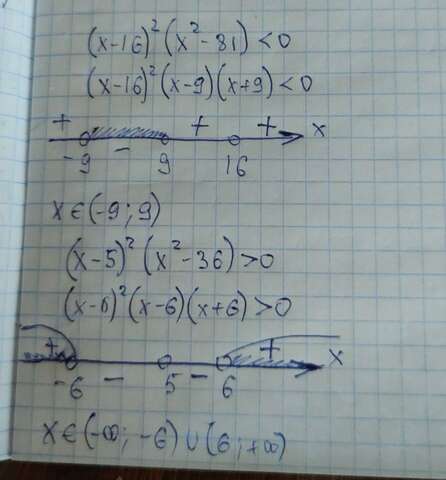 (x-16)²(x²-81)<0
(x-16)²(x-9)(x+9)<0
+ - + + x
-9 9 16
x∈(-9; 9)
(x-5)²(x²-36)>0
(x-6)²(x-6)(x+6)>0
+ - - + x
-6 5 6
x∈(-∞; -6)∪(6; +∞)